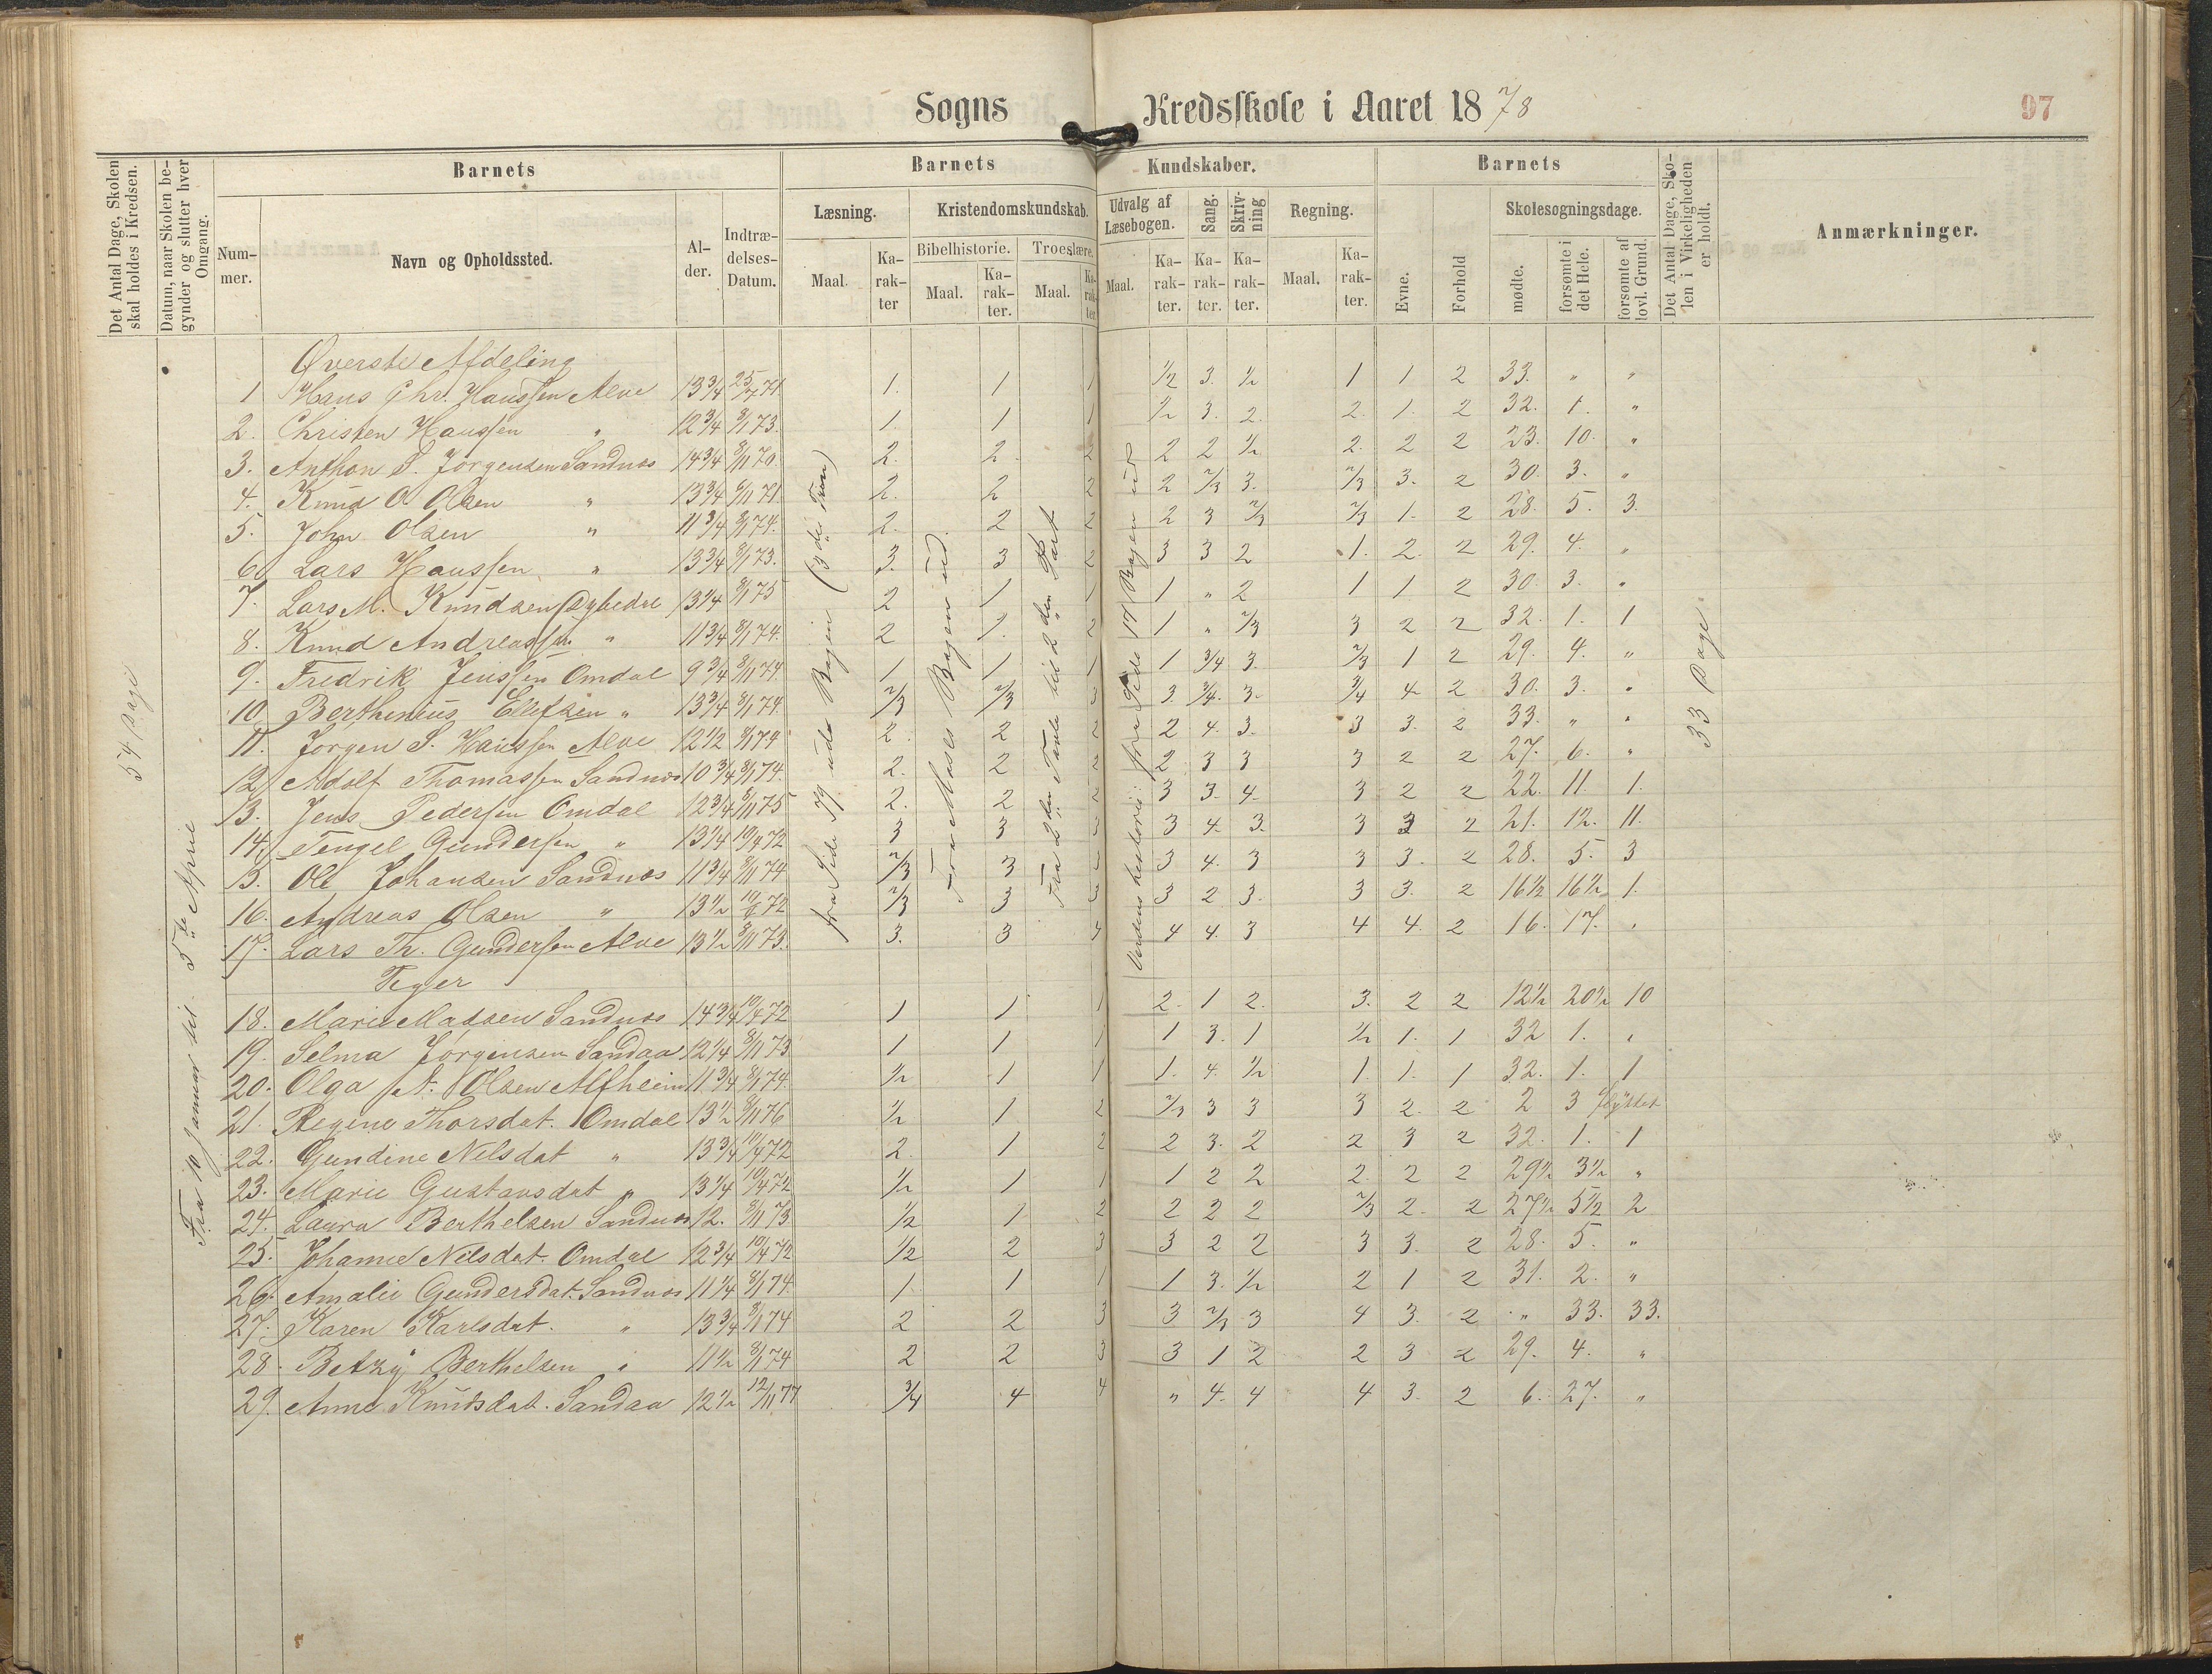 Sogns Kredsskole i Aaret 1878
97
Det Antal Dage, Skolen skal holdes i Kredsen.
Datum, naar Skolen begynder og slutter hver Omgang.
Barnets
Nummer.
Navn og Opholdssted.
Alder.
Indtrædelses-Datum.
Barnets Kundskaber.
Læsning.
Maal.
Karakter
Kristendomskundskab.
Bibelhistorie.
Maal.
Karakter.
Troeslære.
Maal.
Karakter.
Udvalg af Læsebogen.
Maal.
Karakter.
Sang.
Karakter.
Skrivning
Karakter.
Regning.
Maal.
Karakter.
Barnets
Evne.
Forhold
Skolesøgningsdage.
mødte.
forsømte i det Hele.
forsømte af lovl. Grund.
Det Antal Dage, Skolen i Virkeligheden er holdt.
Anmærkninger.
54 Dage
Fra 10 Januar til 5te April
fra Side 79 uds Bogen (3die Trin)
Fra Moses Bogen ud.
Fra 2den Parts til 2den Part
Verdens historie: fra Side 17 Bogen ud
33 Dage
Øverste Afdeling
1 Hans Chr. Hanssen Alve 13 3/4 25/7 71 1. 1 1 1/2 3. 1/2 1 1 2 33. " "
2. Christen Hanssen " 12 3/4 8/1 73. 1. 1 1 1/2 3. 2. 2. 1. 2 32. 1. "
3. Anthon S. Jörgensen Sandnæs 14 3/4 8/11 70. 2. 2. 2 2 2 1/2 2. 2 2 23. 10. "
4. Knud O. Olsen " 13 3/4 6/11 71 2. 2 2 2 2/3 3. 2/3 3. 2 30. 3. "
5. John Olsen " 11 3/4 8/1 74. 2. 2 2 2 3 2/3 2/3 1. 2 28. 5. 3.
6. Lars Hanssen " 13 3/4 8/1 73. 3. 3 2 3 3 2 1. 2. 2 29. 4. "
7. Lars M. Knudsen Dybedal 13 1/4 8/1 75 2 1 1 1 " 2 1 1 2 30. 3. "
8. Knud Andreassen " 11 3/4 8/1 74. 2 1. 2 1 " 2/3 3 2 2 32. 1. 1
9. Fredrik Jenssen Omdal 9 3/4 8/11 74. 1 1 1 1 3/4 3. 2/3 1 2 29. 4. "
10. Berthinius Ellefsen " 13 3/4 8/1 74. 2/3 2/3 3 3. 3/4. 3. 3/4 4 2 30. 3. "
11. Jörgen S. Hanssen Alve 12 1/2 8/1 74 2. 2 2 2 4. 3. 3 3. 2 33. " "
12. Adolf Thomassen Sandnæs 10 3/4 8/1 74. 2. 2 2 2 3 3 3 2 2 27. 6. "
13. Jens Pedersen Omdal 12 3/4 8/11 75 2. 2 2 3 3. 4. 3 2 2 22. 11. 1.
14. Tengel Gundersen " 13 1/4 10/4 72 3 3 3 3 4. 3. 3 3 2 21. 12. 11.
15. Ole Johansen Sandnæs 11 3/4 8/11 74 2/3 3 3 3 4. 3 3 3. 2 28. 5. 3
16. Andreas Olsen " 13 1/2 10/4 72 2/3 3 3 3 2 3. 3 3. 2 16 1/2 16 1/2 1.
17. Lars Th. Gundersen Alve 13 1/2 8/11 73. 3. 3 4 4 4. 3 4 4. 2 16. 17. "
Piger
18. Marie Madsen Sandnæs 14 3/4 10/4 72 1 1 1 2. 1 2. 3. 2 2 12 1/2 20 1/2 10
19. Selma Jörgensen Sandaa 12 1/4 8/11 73 1 1 1 1 3. 1 1/2 1. 1 32 1. "
20. Olga A. Olsen Alfheim 11 3/4 8/1 74. 1/2 1 1 1. 4. 1/2 1. 1. 1 32. 1. 1
21. Regine Thorsdat. Omdal 13 1/2 8/11 76 1/2 1 2 2/3 3 3 3 2. 2 2 3 flyttet
22. Gundine Nilsdat " 13 3/4 10/4 72 2. 1 2 2 3. 2 2 3 2 32. 1. 1
23. Marie Gustavsdat " 13 1/4 10/4 72 1/2 1 1 1 2 2 2. 2 2 29 1/2 3 1/2 "
24. Laura Berthelsen Sandnæs 12. 8/11 73 1/2 1 2 2 2 2 2/3 2. 2 27 1/2 5 1/2 2
25. Johanne Nilsdat. Omdal 12 3/4 10/4 72 1/2 2 3 3 2 2 3 3. 2 28. 5. "
26. Amalie Gundersdat. Sandnæs 11 1/4 8/1 74. 1 1 1 1 3. 1/2 2 1 2 31. 2. "
27. Karen Karlsdat. " 13 3/4 8/1 74 2 2 3 3 2/3 3 4 3. 2 " 33. 33.
28. Betzy Berthelsen " 11 1/2 8/1 74 2 2 3 3 1 2 2 3 2 29. 4. "
29. Anne Knudsdat. Sandaa 12 1/2 12/11 77 3/4 4 4 " 4. 4 4 3. 2 6. 27. "